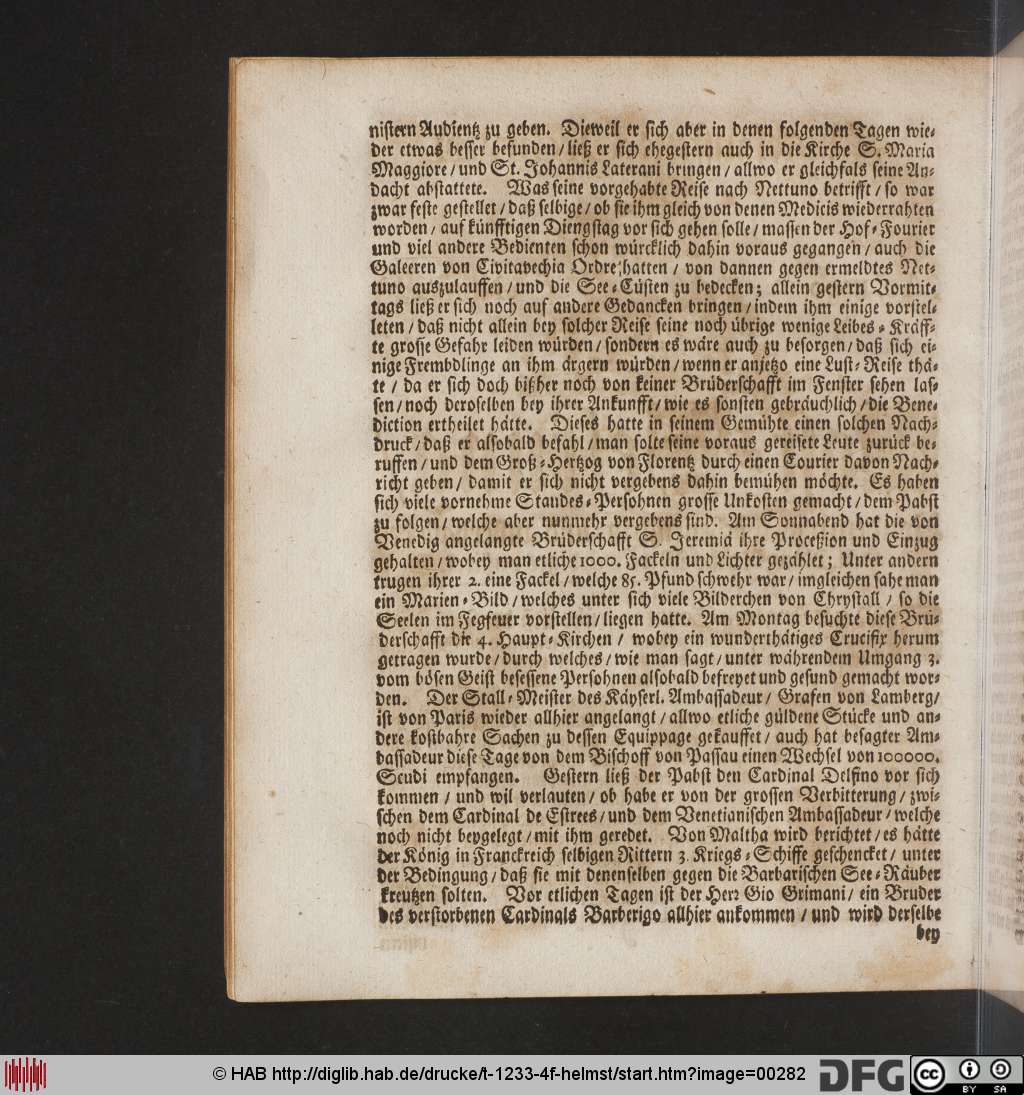 nistern Audientz zu geben. Dieweil er sich aber in denen folgenden Tagen wie-
der etwas besser befunden / ließ er sich ehegestern auch in die Kirche S. Maria
Maggiore / und St. Johannis Laterani bringen / allwo er gleichfals seine An-
dacht abstattete. Was seine vorgehabte Reise nach Nettuno betrifft / so war
zwar feste gestellet / daß selbige / ob sie ihm gleich von denen Medicis wiederrahten
worden / auf künfftigen Diengstag vor sich gehen solle / massen der Hof-Fourier
und viel andere Bedienten schon würcklich dahin voraus gegangen / auch die
Galeeren von Civitavechia Ordre hatten / von dannen gegen ermeldtes Net-
tuno auszulauffen / und die See-Cüsten zu bedecken; allein gestern Vormit-
tags ließ er sich noch auf andere Gedancken bringen / indem ihm einige vorstel-
leten / daß nicht allein bey solcher Reise seine noch übrige wenige Leibes-Kräff-
te grosse Gefahr leiden würden / sondern es wäre auch zu besorgen / daß sich ei-
nige Frembdlinge an ihm ärgern würden / wenn er anjetzo eine Lust-Reise thä-
te / da er sich doch bißher noch von keiner Brüderschafft im Fenster sehen las-
sen / noch deroselben bey ihrer Ankunfft / wie es sonsten gebräuchlich / die Bene-
diction ertheilet hätte. Dieses hatte in seinem Gemühte einen solchen Nach-
druck / daß er alsobald befahl / man solte seine voraus gereisete Leute zurück be-
ruffen / und dem Groß-Hertzog von Florentz durch einen Courier davon Nach-
richt geben / damit er sich nicht vergebens dahin bemühen möchte. Es haben
sich viele vornehme Standes-Persohnen grosse Unkosten gemacht / dem Pabst
zu folgen / welche aber nunmehr vergebens sind. Am Sonnabend hat die von
Venedig angelangte Brüderschafft S. Jeremiä ihre Proceßion und Einzug
gehalten / wobey man etliche 1000. Fackeln und Lichter gezählet; Unter andern
trugen ihrer 2. eine Fackel / welche 85. Pfund schwehr war / imgleichen sahe man
ein Marien-Bild / welches unter sich viele Bilderchen von Chrystall / so die
Seelen im Fegfeuer vorstellen / liegen hatte. Am Montag besuchte diese Brü-
derschafft die 4. Haupt-Kirchen / wobey ein wunderthätiges Crucifix herum
getragen wurde / durch welches / wie man sagt / unter währendem Umgang 3.
vom bösen Geist besessene Persohnen alsobald befreyet und gesund gemacht wor-
den. Der Stall-Meister des Käyserl. Ambassadeur / Grafen von Lamberg /
ist von Paris wieder allhier angelangt / allwo etliche güldene Stücke und an-
dere kostbahre Sachen zu dessen Equippage gekauffet / auch hat besagter Am-
bassadeur diese Tage von dem Bischoff von Passau einen Wechsel von 100000.
Scudi empfangen. Gestern ließ der Pabst den Cardinal Delfino vor sich
kommen / und wil verlauten / ob habe er von der grossen Verbitterung / zwi-
schen dem Cardinal de Estrees / und dem Venetianischen Ambassadeur / welche
noch nicht beygelegt / mit ihm geredet. Von Maltha wird berichtet / es hätte
der König in Franckreich selbigen Rittern 3. Kriegs-Schiffe geschencket / unter
der Bedingung / daß sie mit denenselben gegen die Barbarischen See-Räuber
kreutzen solten. Vor etlichen Tagen ist der Herr Gio Grimani / ein Bruder
des verstorbenen Cardinals Barberigo allhier ankommen / und wird derselbe
bey
© HAB http://diglib.hab.de/drucke/t-1233-4f-helmst/start.htm?image=00282
DFG
cc BY SA